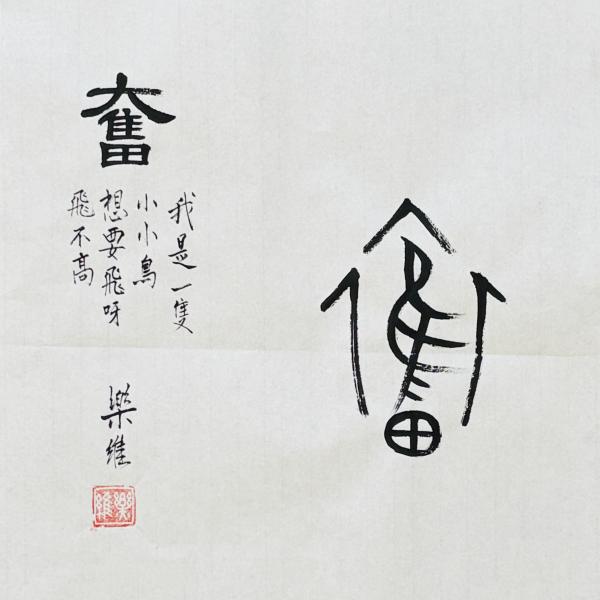 奮
奮
我是一隻
小小鳥
想要飛呀
飛不高
樂維
樂維